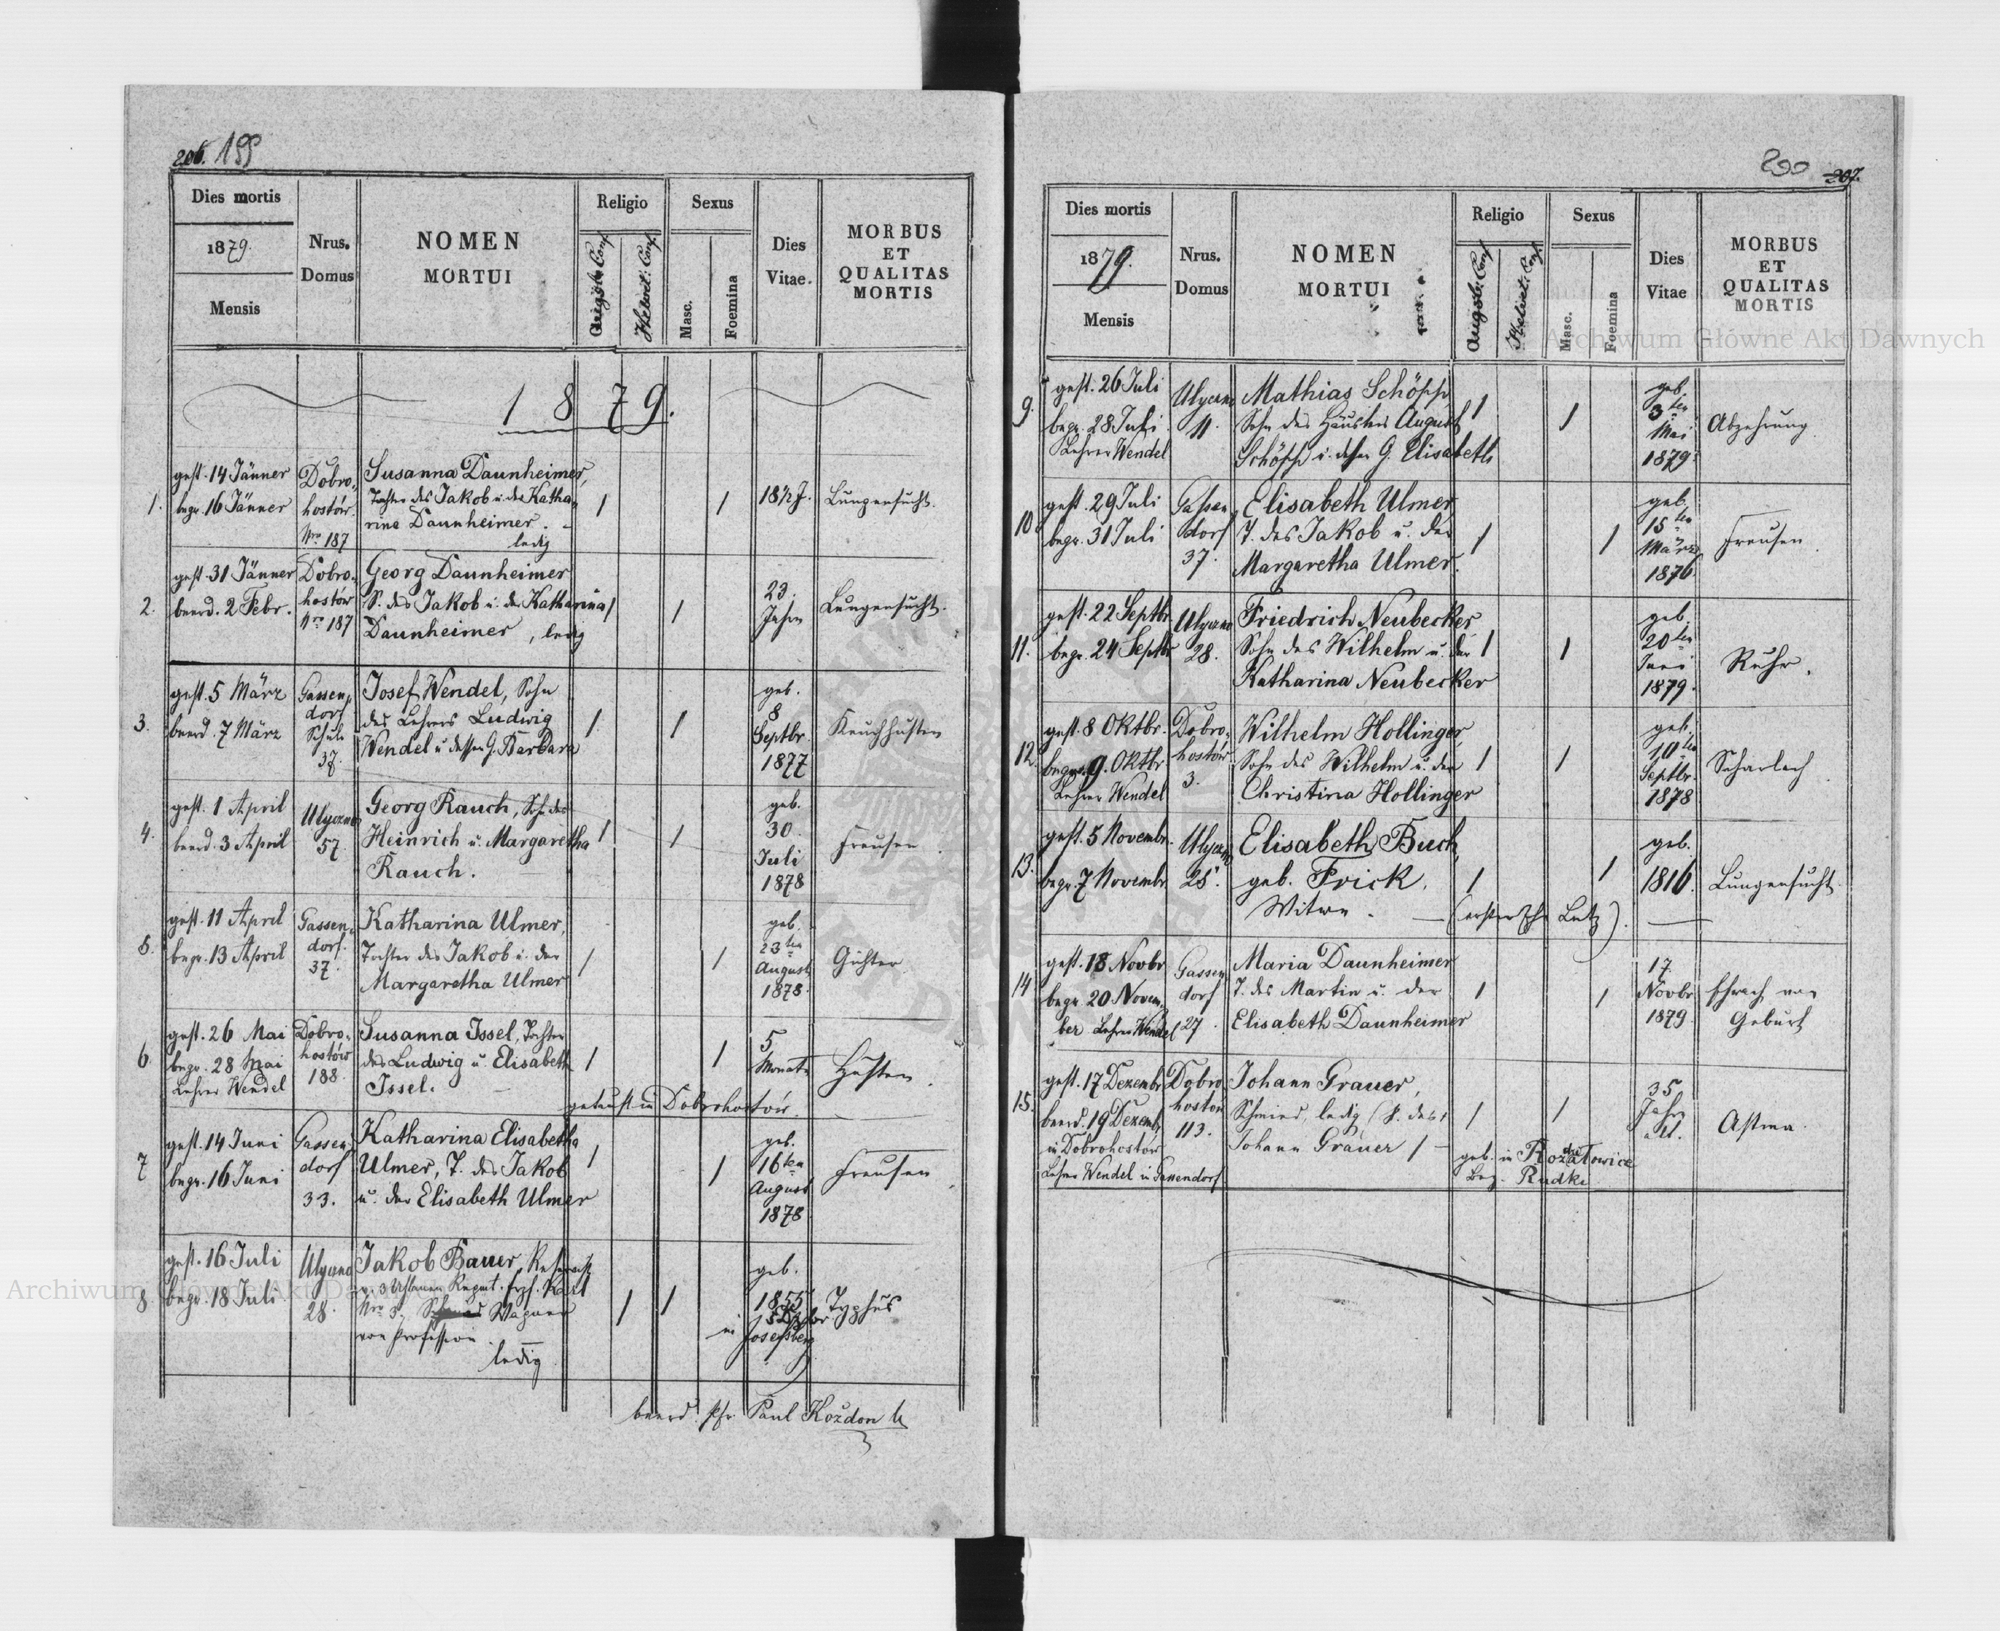 206. 199
Dies mortis
1879.
Mensis
Nrus.
Domus
NOMEN
MORTUI
Religio
Augsb. Conf.
Helvet. Conf.
Sexus
Masc.
Foemina
Dies
Vitae.
MORBUS
ET
QUALITAS
MORTIS
1879.
1.
gest. 14 Jänner
begr. 16 Jänner
Dobro-
hostów
Nro 187
Susanna Daunheimer,
Tochter des Jakob u. der Katha-
rina Daunheimer.
ledig
1
1
18 1/2 J.
Lungensucht.
2.
gest. 31 Jänner
beerd. 2 Febr.
Dobro-
hostów
Nro 187
Georg Daunheimer
S. des Jakob u. der Katharina
Daunheimer, ledig
1
1
23.
Jahre
Lungensucht.
3.
gest. 5 März
beerd. 7 März
Gassen-
dorf
Schule
37.
Josef Wendel, Sohn
des Lehrers Ludwig
Wendel u. dessen G. Barbara
1
1
geb.
8
Septbr.
1877
Keuchhusten
4.
gest. 1 April
beerd. 3 April
Ulyczno
57
Georg Rauch, Sohn des
Heinrich u. Margaretha
Rauch.
1
1
geb.
30.
Juli
1878
Freusen
5.
gest. 11 April
begr. 13 April
Gassen-
dorf.
37.
Katharina Ulmer,
Tochter des Jakob u. der
Margaretha Ulmer
1
1
geb.
23ten
August
1878.
6.
gest. 26 Mai
begr. 28 Mai
Lehrer Wendel
Dobro-
hostów
188.
Susanna Issel, Tochter
des Ludwig u. Elisabeth
Issel.
getauft in Dobrohostów.
1
1
5
Monate
Husten.
7
gest. 14 Juni
begr. 16 Juni
Gassen-
dorf
33.
Katharina Elisabetha
Ulmer, T. des Jakob
u. der Elisabeth Ulmer
1
1
geb.
16ten
August
1878
Freusen
8
gest. 16 Juli
begr. 18 Juli
Ulyczno
28.
Jakob Bauer, Reservist
v. 3 Uhlanen Regmt. Erzh. Karl
Nro 3. Wagner
von Profession.
ledig
1
1
geb.
1855
in Josefsberg
Typhus
beerd. Pfr. Paul Kozdon
200 207.
Dies mortis
1879.
Mensis
Nrus.
Domus
NOMEN
MORTUI
Religio
Augsb. Conf.
Helvet. Conf.
Sexus
Masc.
Foemina
Dies
Vitae
MORBUS
ET
QUALITAS
MORTIS
9.
gest. 26 Juli
begr. 28 Juli
Lehrer Wendel
Ulyczno
11.
Mathias Schöpp
Sohn des Häuslers August
Schöpp u. dessen G. Elisabeth
1
1
geb.
3ten
Mai
1879.
Abzehrung.
10
gest. 29 Juli
begr. 31 Juli
Gassen-
dorf
37.
Elisabeth Ulmer
T. des Jakob u. der
Margaretha Ulmer.
1
1
geb.
15ten
März
1876
Freusen.
11.
gest. 22 Septbr
begr. 24 Septbr
Ulyczno
28.
Friedrich Neubecker
Sohn des Wilhelm u. der
Katharina Neubecker
1
1
geb.
20ten
Juni
1879.
Ruhr.
12.
gest. 8 Oktbr.
begr. 9. Oktbr
Lehrer Wendel
Dobro-
hostów
3.
Wilhelm Hollinger
Sohn des Wilhelm u. der
Christina Hollinger
1
1
geb.
10ten
Septbr.
1878
Scharlach
13.
gest. 5 Novembr.
begr. 7 Novembr
Ulyczno
25.
Elisabeth Buch,
geb. Frick.
Witwe. — (erster Ehe Lutz). —
1
1
geb.
1816.
Lungensucht.
14
gest. 18 Novbr
begr. 20 Novem-
ber Lehrer Wendel
Gassen
dorf
27.
Maria Daunheimer
T. des Martin u. der
Elisabeth Daunheimer
1
1
17.
Novbr
1879.
schwach von
Geburt
15.
gest. 17 Dezembr
beerd. 19 Dezembr
in Dobrohostów
Lehrer Wendel in Gassendorf
Dobro
hostów
113.
Johann Grauer,
Schmied, ledig (S. des
Johann Grauer) —
geb. in Rozdałowice
Bez. Rudki
1
1
35
Jahre
alt.
Astma.
Archiwum Główne Akt Dawnych
Archiwum Główne Akt Dawnych